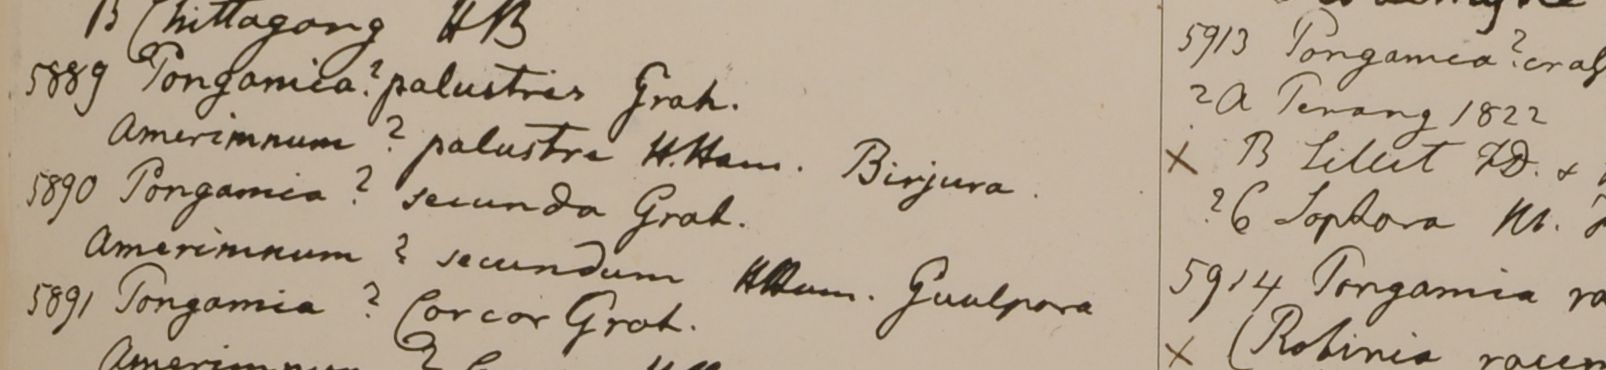 B Chittagong HB
5889 Pongamia? palustris Grah.
Amerimnum? palustre H.Ham. Birjura.
5890 Pongamia? secunda Grah.
Amerimnum? secundum HHam. Gualpora
5891 Pongamia? Corcor Grah.
Amerimnum?
5913 Pongamia?
?A Penang 1822
x B Sillet FD. &
?C Sophora
5914 Pongamia
x (Robinia